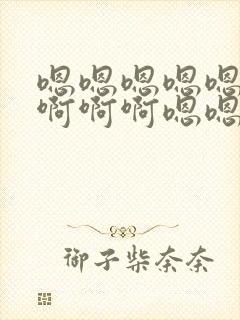 嗯嗯嗯嗯嗯
啊啊啊嗯嗯
御子柴奈奈